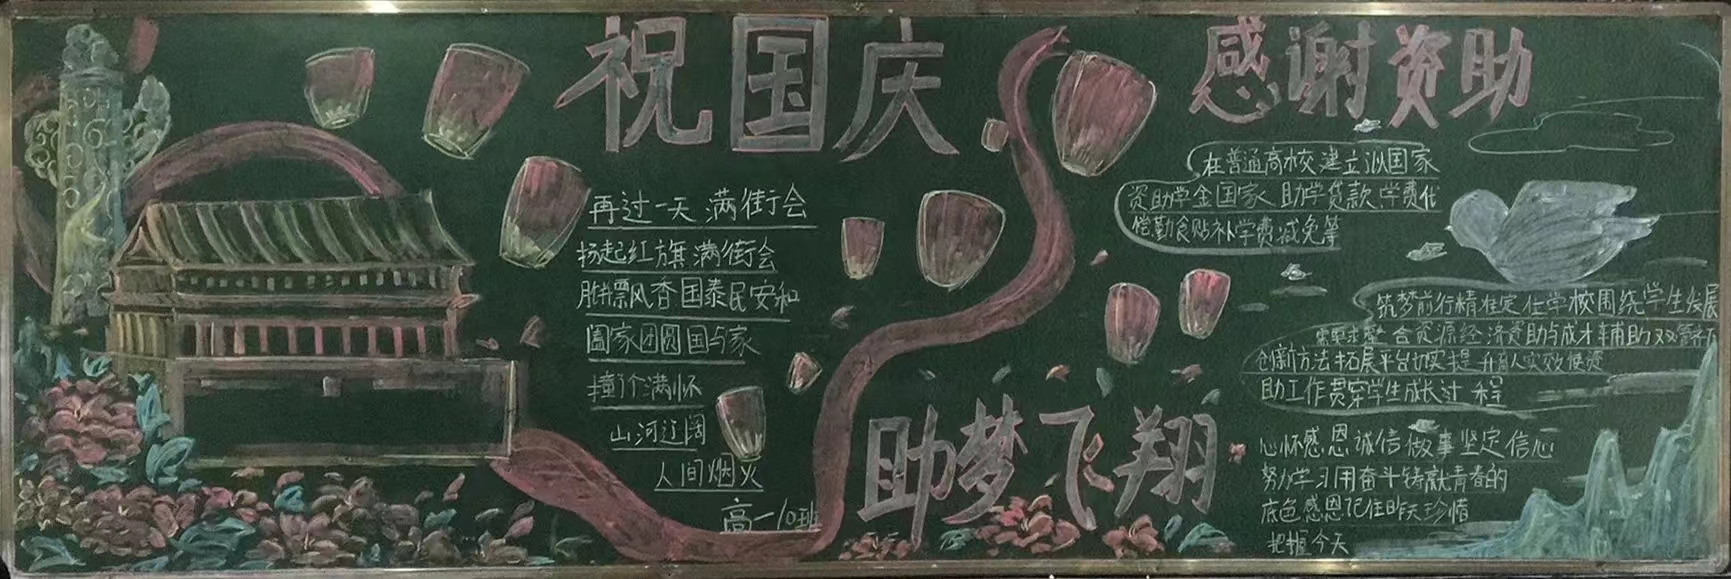 祝国庆
再过一天满街会
扬起红旗满街会
胜飘风香国泰民安和
阖家团圆国与家
撞个满怀
山河辽阔
人间烟火
高一10班
感谢资助
在普通高校建立以国家
资助学金国家助学贷款学费代
偿勤食贴补学费减免等
筑梦前行精准定位学校围绕学生发展
需求整合资源经济资助与成才辅助双管齐下
创新方法拓展平台切实提升育人实效使资
助工作贯穿学生成长过程
心怀感恩诚信做事坚定信心
努力学习用奋斗铸就青春的
底色感恩记住昨天珍惜
把握今天
助梦飞翔